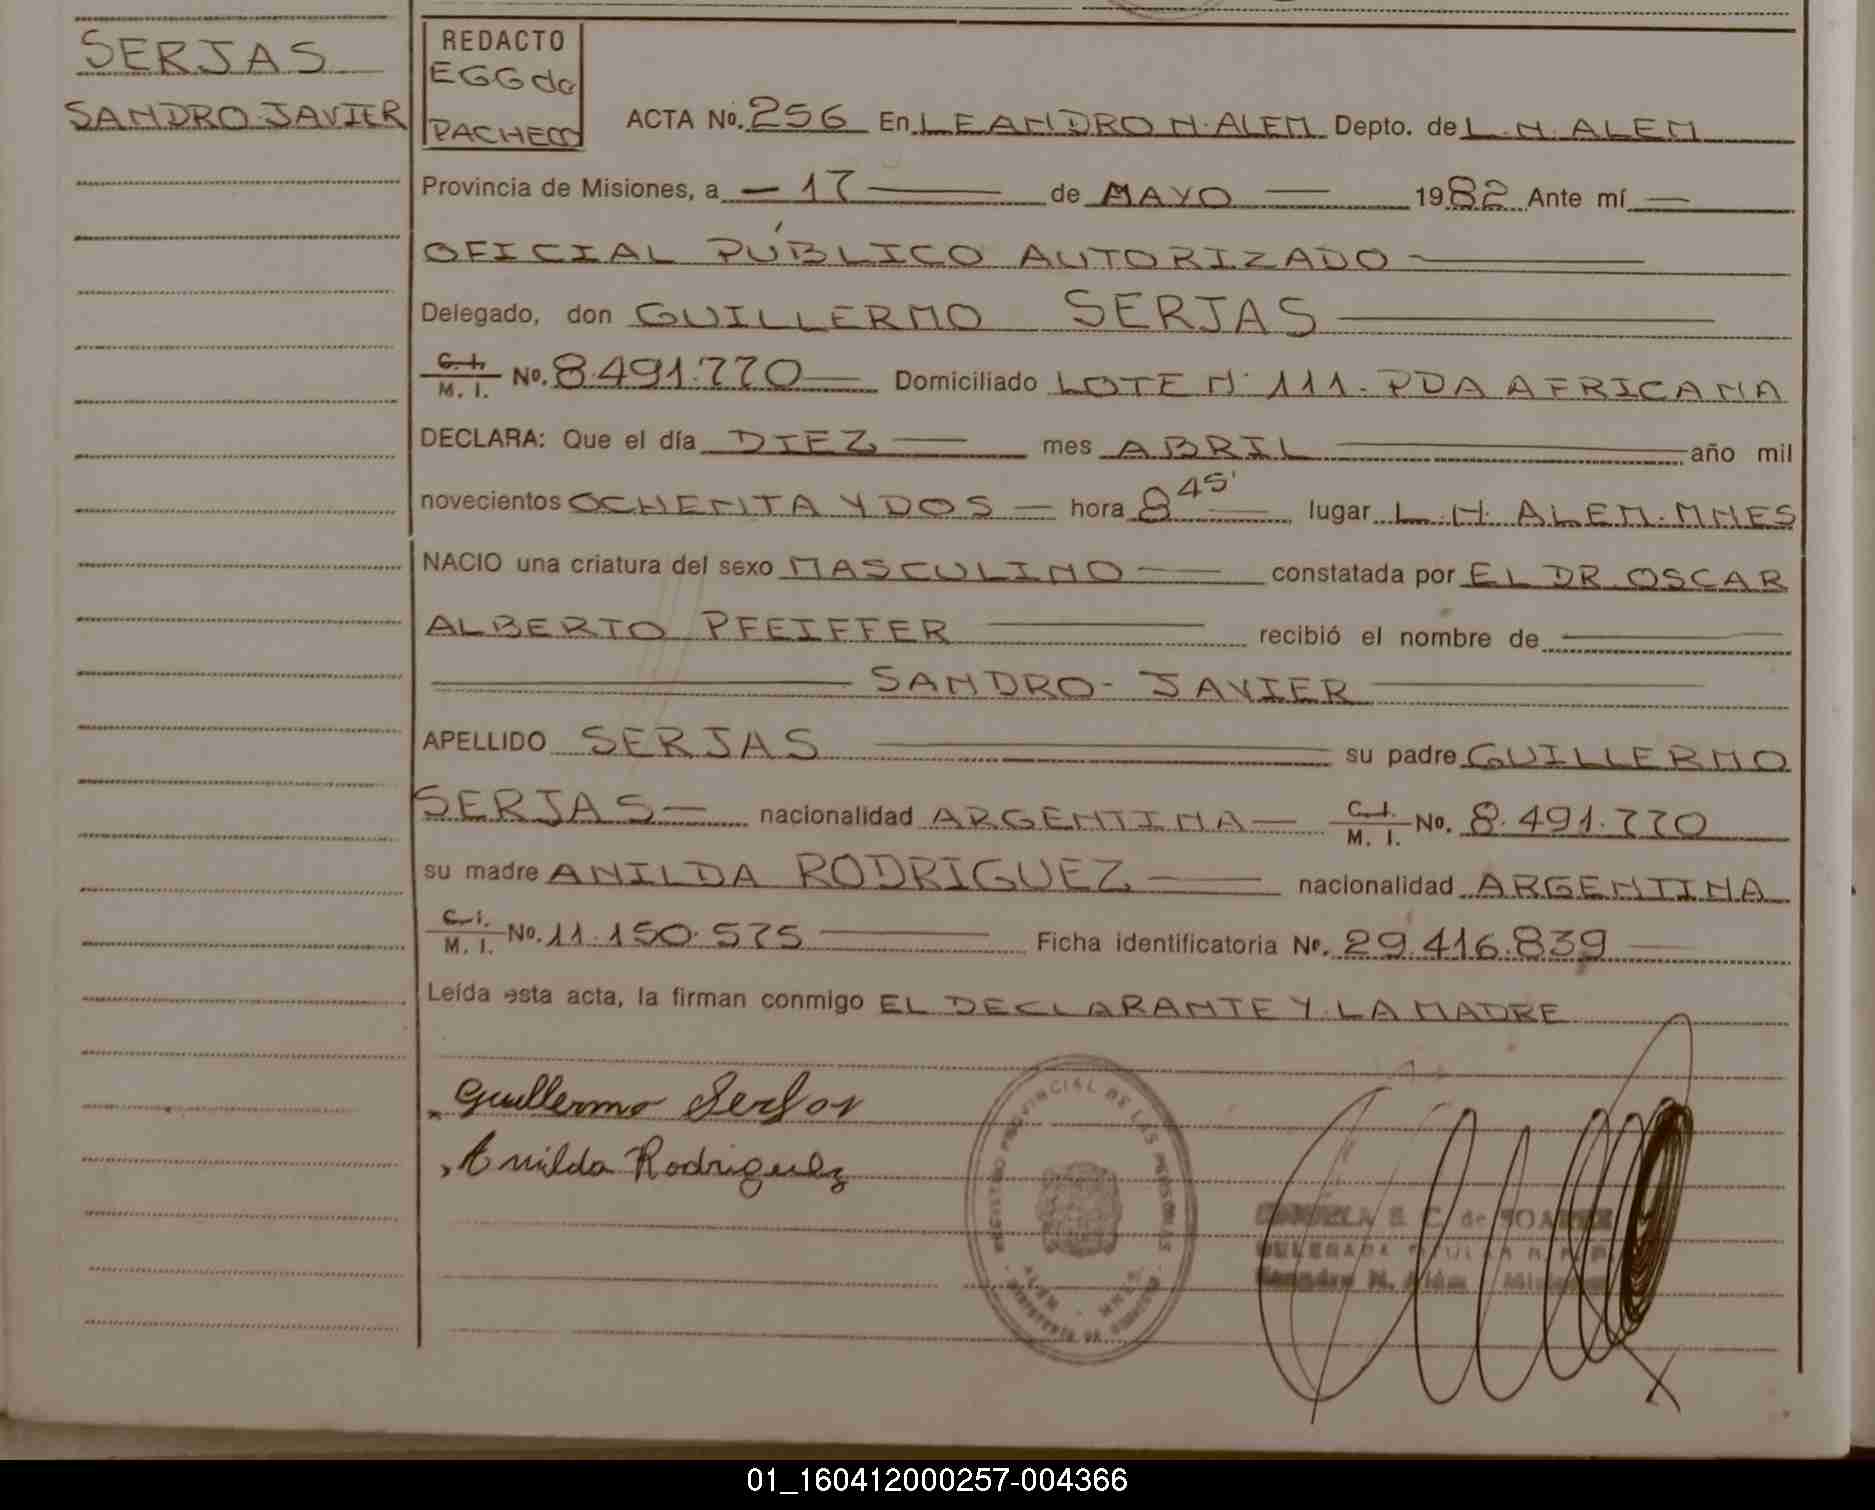 SERJAS
SANDRO JAVIER
REDACTO
EGG de
PACHECO
ACTA Nº. 256 En LEANDRO N. ALEM Depto. de L. N. ALEM
Provincia de Misiones, a 17 de MAYO 1982 Ante mí
OFICIAL PÚBLICO AUTORIZADO
Delegado, don GUILLERMO SERJAS
C. I. / M. I. Nº. 8.491.770 Domiciliado LOTE Nº 111 - PDA AFRICANA
DECLARA: Que el día DIEZ mes ABRIL año mil
novecientos OCHENTA Y DOS hora 8 45' lugar L. N. ALEM. MNES
NACIO una criatura del sexo MASCULINO constatada por EL DR OSCAR
ALBERTO PFEIFFER recibió el nombre de
SANDRO - JAVIER
APELLIDO SERJAS su padre GUILLERMO
SERJAS nacionalidad ARGENTINA C. I. / M. I. Nº. 8.491.770
su madre ANILDA RODRIGUEZ nacionalidad ARGENTINA
C. I. / M. I. Nº. 11.150.575 Ficha identificatoria Nº. 29.416.839
Leída esta acta, la firman conmigo EL DECLARANTE Y LA MADRE
Guillermo Serjas
Anilda Rodriguez
REGISTRO PROVINCIAL DE LAS PERSONAS
ALEM - MNES
S. C. de SOAREZ
DELEGADA TITULAR
Leandro N. Além - Misiones
01_160412000257-004366